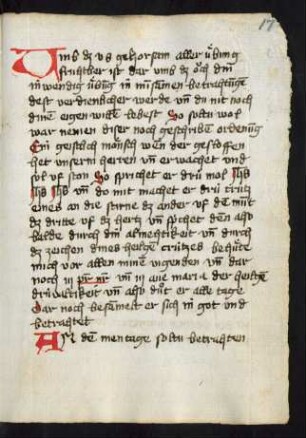 17
Vmb dz vs gehorsam aller ůbung
fruchtber ist dar vmb dz och din
inwendig ůbung in in samen betrachtūge
dest verdienlicher werde vn̄ du nit noch
dinē eigen willē lebest So soltu wol
war nemen diser noch geschribē ordenūg
Ein geistlich mönsch wen der gesloffen
het vnserm herren vn̄ erwachet vnd
sol vf ston So sprichet er drü mol Jhs
Jhs Jhs vn̄ do mit machet er drü crütz
eines an die stirne dz ander vf dē munt
dz dritte vf dz hertz vn̄ spchet den also
Balde durch din almechtikeit vn̄ durch
dz zeichen dines heilgē crützes behüte
mich vor allen minē vigenden vn̄ dar
noch in pr̄ nr̄ vn̄ in aue maria der heilgē
driualtikeit vn̄ also dut er alle tage
Dar noch besamelt er sich in got vnd
betrachtet
An dē mentage soltu betrahten